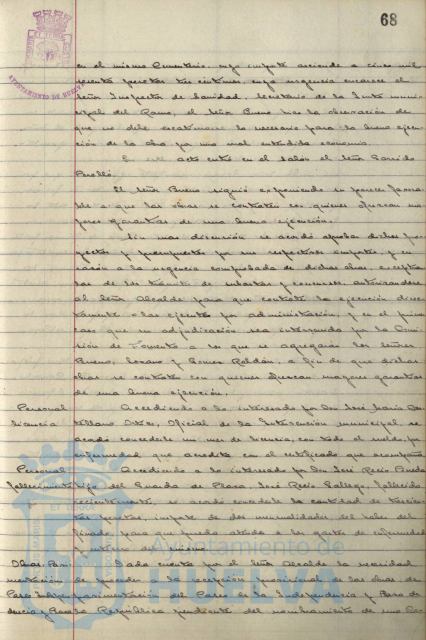 68
AYUNTAMIENTO DE HUELVA
en el mismo Cementerio, cuyo importe asciende a cinco mil
pesetas tres céntimos cuya urgencia encarece el
señor Inspector de Sanidad, Secretario de la Junta muni-
cipal del Ramo, el señor Bueno hace la observación de
que no debe escatimarse lo necesario para la buena ejecu-
ción de la obra por una mal entendida economía.
En este acto entra en el salón el señor Garrido
Perelló.
El señor Bueno siguió exponiendo su parecer favora-
ble a que las obras se contraten con quienes ofrezcan ma-
yores garantías de una buena ejecución.
Sin mas discusión se acordó aprobar dichos pro-
yectos y presupuestos por sus respectivos importes, y en
razón a la urgencia comprobada de dichas obras exceptuar-
las de los trámites de subastas y concursos, autorizándose
al señor Alcalde para que contrate la ejecución direc-
tamente o las ejecute por administración, y en el primer
caso que su adjudicación sea intervenida por la Comi-
sión de Fomento a los que se agregarán los señores
Bueno, Lozano y Gomez Roldán, a fin de que dichas
obras se contraten con quienes ofrezcan mayores garantías
de una buena ejecución.
Personal Accediendo a lo interesado por Don José María
licencia Oficial de la Intervención municipal, se
acordó concederle un mes de licencia, con todo el sueldo, por
enfermedad que acredita con el certificado que acompaña
Personal Accediendo a lo interesado por Don José Recio Rueda
fallecimiento hijo del Guarda de Plaza, José Recio Gallego, fallecido
recientemente, se acordó concederle la cantidad de trescien-
tas pesetas, importe de dos mensualidades del haber del
finado, para que pueda atender a los gastos de enfermedad
y entierro del mismo.
Obras Pavi- Dada cuenta por el señor Alcalde de la necesidad
mentación de proceder a la recepción provisional de las obras de
Paseo Indepen- pavimentación del Paseo de la Independencia y Plaza de
dencia y Plaza la República pendiente del nombramiento de una Co-
Ayuntamiento de
HUELVA